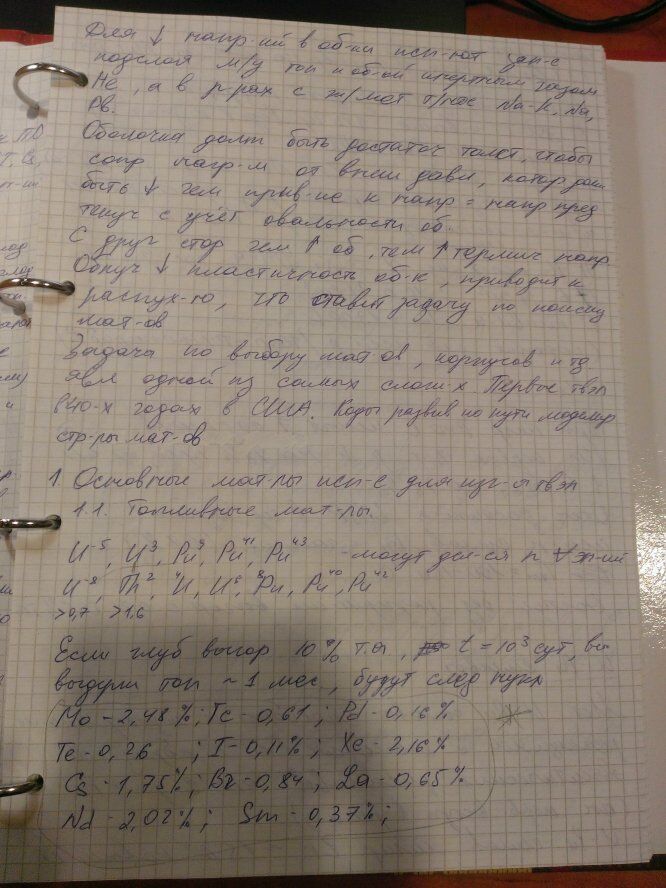 Для ↓ напр-ий в об-ки исп-ют зап-е
подслоя м/у топ и об-ой инертным газом
He, а в р-рах с ж/мет т/нос Na-K, Na,
Pb.
Оболочка долж быть достаточ толст, чтобы
сопр нагр-м от внеш давл, котор долж
быть ↓ чем прив-ие к напр = напр пред
текуч с учёт овальности об.
С друг стор чем ↑ об, тем ↑ термич напр
Облуч ↓ пластичность об-к, приводит к
распух-ю, что ставит задачу по поиску
мат-ов
Задача по выбору мат-ов, корпусов и тд
явл одной из самых сложн х. Первые твэл
в 40-х годах в США. Коды развив по пути моделир
стр-ры мат-ов
1. Основные мат-лы исп-е для изг-я твэл
1.1. Топливные мат-лы
U⁻⁵, U³, Pu⁹, Pu⁴¹, Pu⁴³ - могут дел-ся n ∀ эн-ий
U⁻⁸, Th², U, U⁶, ⁸Pu, Pu⁴⁰, Pu⁴²
>0,7 >1,6
Если глуб выгор 10% т.а, t = 10³ сут,
выдерж топ ~ 1 мес, будут след нукл
Mo - 2,48%; Tc - 0,61; Pd - 0,16%
Te - 0,26 ; I - 0,11%; Xe - 2,16%
Cs - 1,75%; Ba - 0,84; La - 0,65%
Nd - 2,02%; Sm - 0,37%;